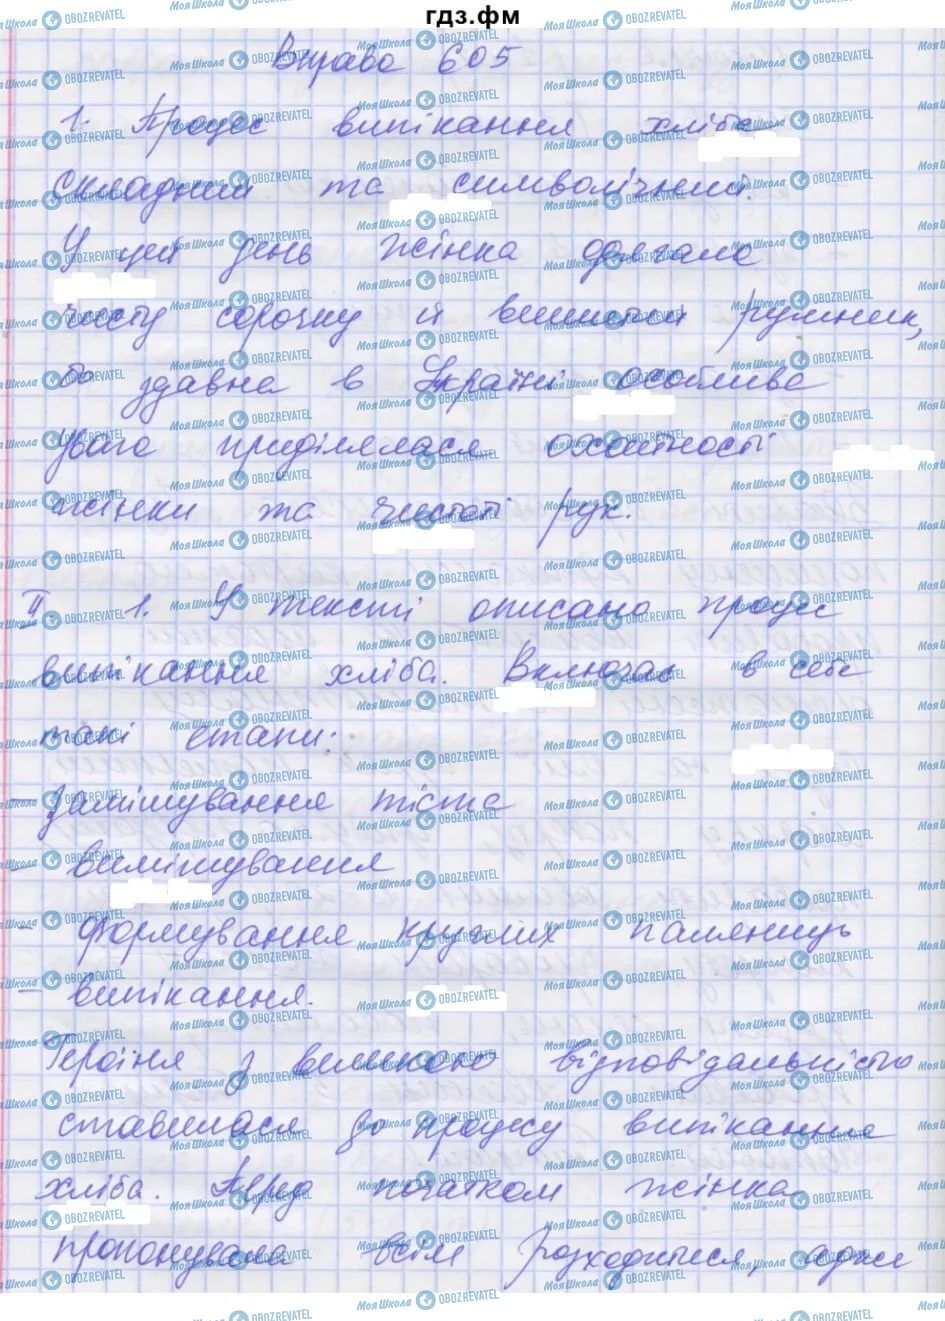 гдз.фм
Вправа 605
1. Процес випікання хліба
складний та символічний.
У цей день жінка одягала
чисту сорочку й вишитий рушник,
бо здавна в Україні особлива
увага приділялася охайності
жінки та чистоті рук.
II. 1. У тексті описано процес
випікання хліба. Включає в себе
такі етапи:
замішування тіста
- вимішування
- формування круглих паляниць
- випікання.
Героїня з великою відповідальністю
ставилася до процесу випікання
хліба. Перед початком жінка
пропонувала всім розходитися, адже